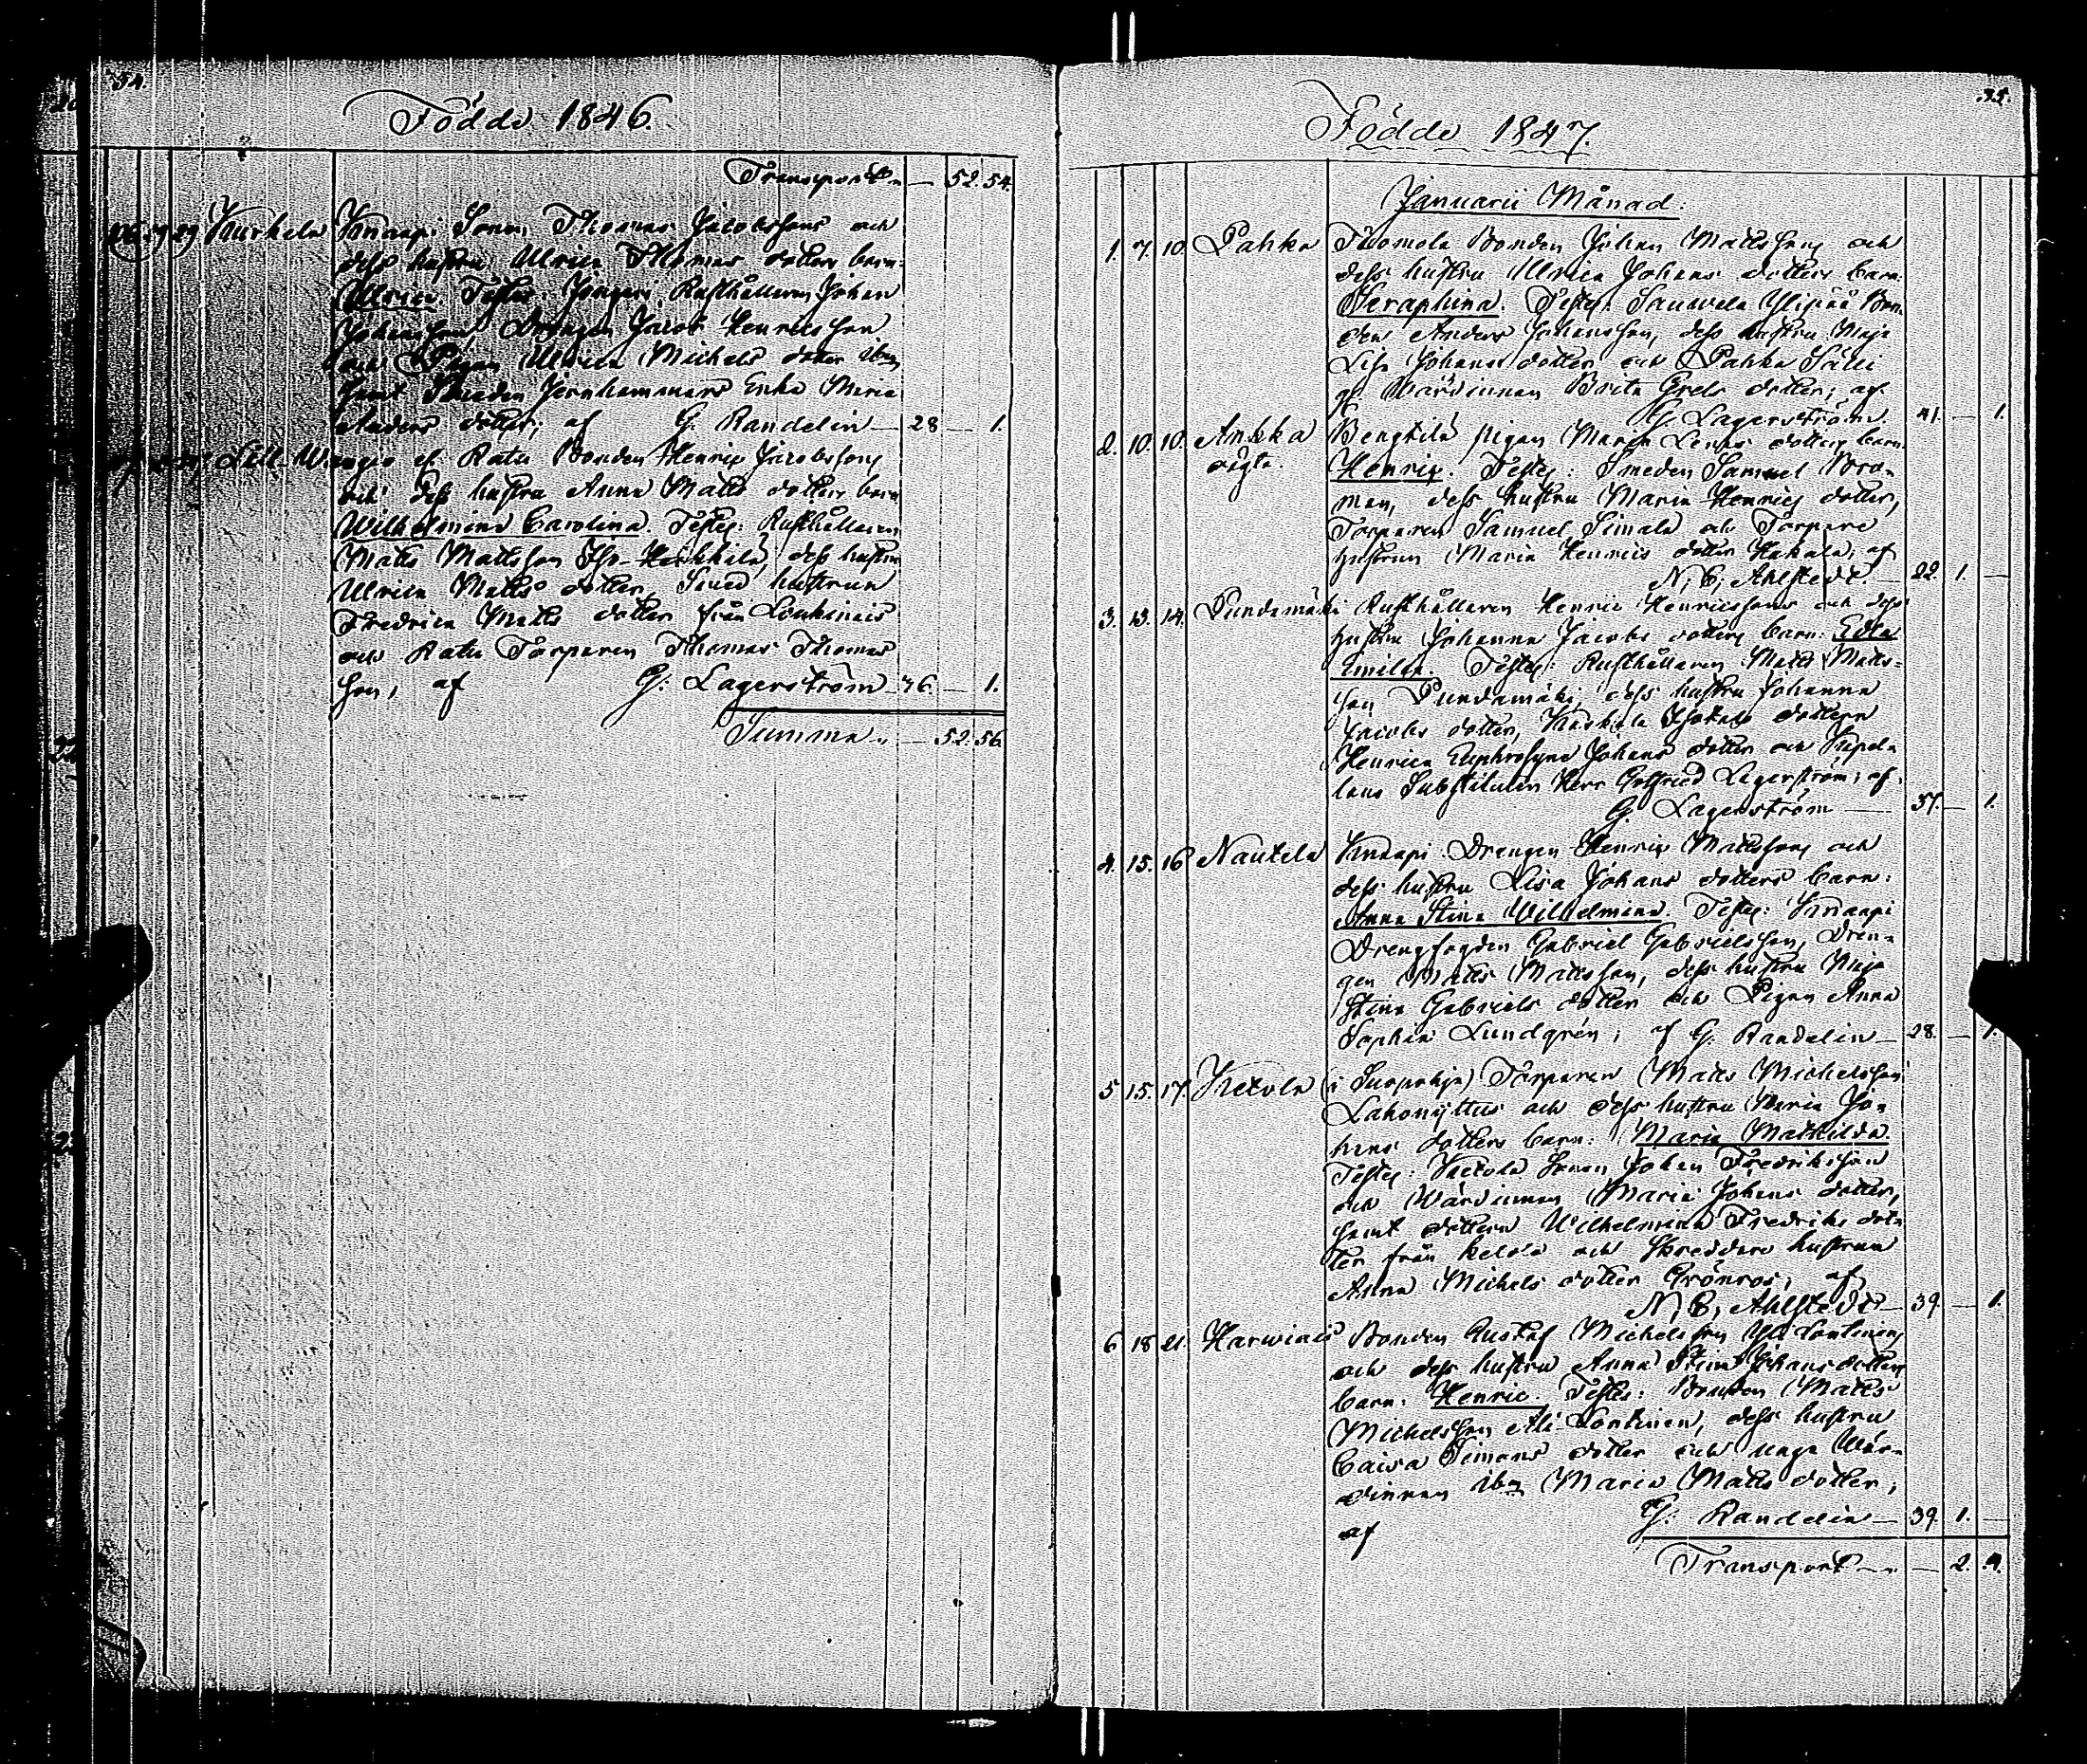 34.
Födde 1846.
Transport — 52. 54.
Kurkela Knaapi Sonen Thomas Jacobssons och
dess hustru Ulrica Thomas dotters barn:
Ulrica. Testes: Rusthållaren Johan
Johansson, Drengen Jacob Henricsson
och Pigan Ulrica Michels dotter ibm
samt Smeden Jernhammars Enka Maria
Anders dotter; af G. Randelin — 28 — 1.
Lill W. af Ratu Bonden Henric Jacobssons
och dess hustru Anna Matts dotters barn
Wilhelmina Carolina. Testes: Rusthållaren
Matts Mattsson Iso-Heikkilä, dess hustru
Ulrica Matts dotter, Smed hustrun
Fredrica Matts dotter från Loukinais
och Ratu Torparen Thomas Thomas
son, af G. Lagerström — 46 — 1.
Summa — 52. 56.
35.
Födde 1847.
Januarii Månad:
1. 7. 10. Pahka Thomola Bonden Johan Mattssons och
dess hustru Ulrica Johans dotters barn:
Seraphina. Testes: Sauwela Ylipää Bon-
den Anders Johansson, dess hustru Maja
Lisa Johans dotter och Pahka Sälli
Wärdinnan Brita Greta dotter; af
G. Lagerström 41 — 1.
2. 10. 10. Ankka Bengtilä pigan Maria Lenas dotters barn
rågta. Henric. Testes: Smeden Samuel Bro-
man, dess hustru Maria Henrics dotter,
Torparen Samuel Simala och Torpare
hustrun Maria Henrics dotter Hakala; af
N, C, Ahlstedt. — 22. 1. —
3. 13. 14. Pundamäki Rusthållaren Henric Henricssons och dess
hustru Johanna Jacobs dotters barn: Edla
Emilia. Testes: Rusthållaren Matts Matts-
son Pundamäki, dess hustru Johanna
Jacobs dotter, dottern
Henrica Euphrosyne Johans dotter och Capel-
lans Substituten Herr Gotfried Lagerström; af
G. Lagerström — 37. — 1.
4. 15. 16 Nautela Knaapi Drengen Henric Mattssons och
dess hustru Lisa Johans dotters barn:
Anna Stina Wilhelmina. Testes: Knaapi
Drengfogden Gabriel Gabrielsson, Dren-
gen Matts Mattsson, dess hustru Maja
Stina Gabriels dotter och Pigan Anna
Sophia Lundgrén; af G. Randelin — 28. — 1.
5 15. 17. Ketola (i Suopohja) Torparen Matts Michelsson
Lakonyttus och dess hustru Maria Jo-
hans dotters barn: Maria Mathilda.
Testes: Ketola Sonen Johan Fredriksson
och Wärdinnan Maria Johans dotter,
samt dottern Wilhelmina Fredriks dot-
ter från Ketola och Skreddare hustrun
Anna Michels dotter Grönros, af
N, C, Ahlstedt — 39. — 1.
6 18 21. Harwiais Bonden Gustaf Michelsson Yli Lontinen
och dess hustru Anna Stina Johans dotters
barn: Henric. Testes: Bonden Matts
Michelsson Ali-Lontinen, dess hustru
Caisa Simons dotter och unga Wär-
dinnan ibm Maria Matts dotter,
af G. Randelin — 39. 1. —
Transport — 2. 4.